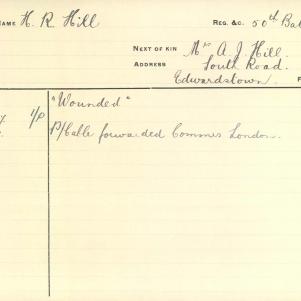 NAME H. R. Hill REG. &C. 50th Bat
NEXT OF KIN Mr A J Hill.
ADDRESS South Road.
Edwardstown.
"Wounded"
P/Cable forwarded Commis London.